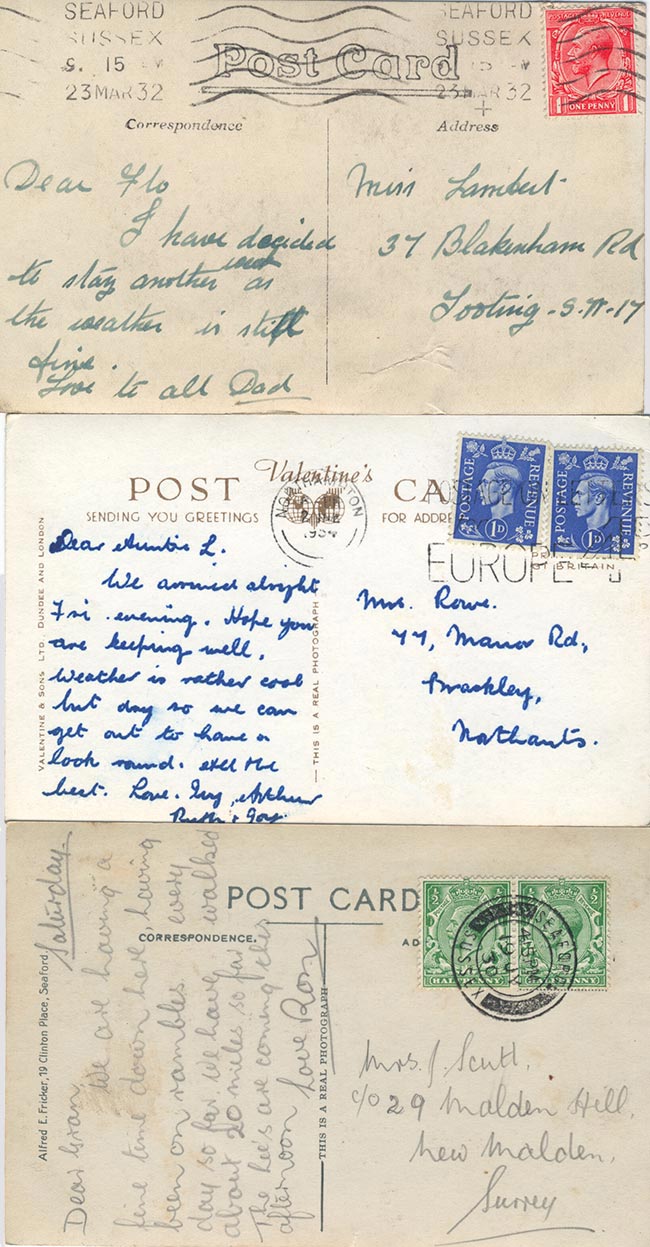 SEAFORD
SUSSEX
9. 15
23 MAR 32
SEAFORD
SUSSEX
15
23 MAR 32
Post Card
POSTAGE REVENUE
1 ONE PENNY 1
Correspondence
Address
Dear Flo
I have decided
to stay another week as
the weather is still
fine.
Love to all Dad
Miss Lambert
37 Blakenham Rd
Tooting - S.W.17
Valentine's
POST CA
SENDING YOU GREETINGS
FOR ADDRE
1954
POSTAGE REVENUE
1D
POSTAGE REVENUE
1D
EUROPE
BRITAIN
VALENTINE & SONS LTD. DUNDEE AND LONDON
THIS IS A REAL PHOTOGRAPH
Dear Auntie L.
We arrived alright
Fri. evening. Hope you
are keeping well.
Weather is rather cool
but dry so we can
get out to have a
look round. All the
best. Love. Ivy, Arthur
Mrs. Rowe.
77, Manor Rd,
Brackley,
Nothants.
POST CARD
CORRESPONDENCE.
AD
Alfred E. Fricker, 19 Clinton Place, Seaford.
THIS IS A REAL PHOTOGRAPH
½ ½
HALF
½ ½
PENNY
SEAFORD
SUSSEX
4.15 PM
30
Saturday.
Dear Gran,
We are having a
fine time down here, having
been on rambles every
day so far. We have walked
about 20 miles so far
The Lee's are coming this
afternoon Love Ron
Mrs. J. Scutt.
c/o 29 Malden Hill,
New Malden,
Surrey